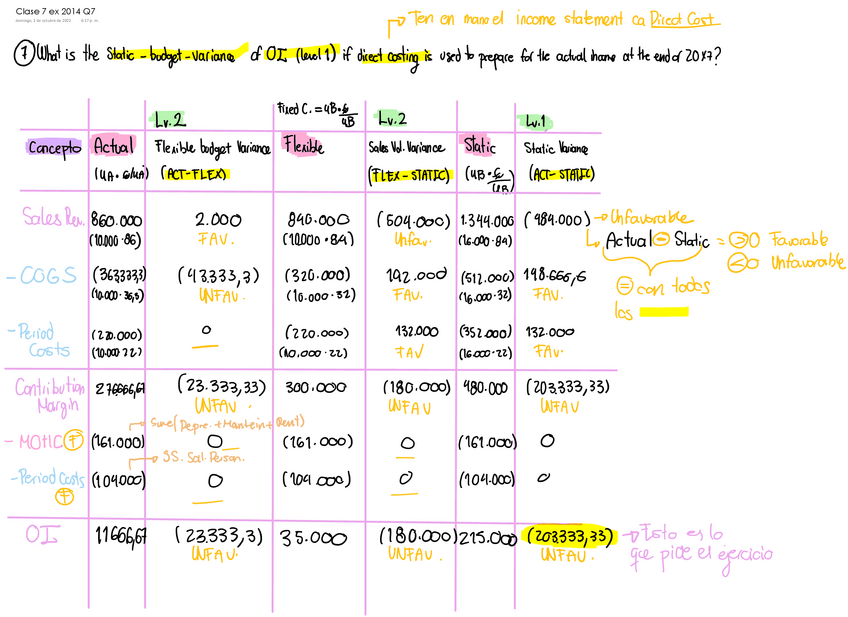 Clase 7 ex 2014 Q7
Ten en mano el income statement ca Direct Cost
7 What is the Static-budget-variance of OI (level 1) if direct costing is used to prepare for the actual income at the end of 20X7?
Lv.2 Fixed C. = uB · Lv.2 Lv.1
Concepto Actual Flexible budget Variance Flexible Sales Vol. Variance Static Static Variance
(ACT-FLEX) (FLEX-STATIC) (ACT-STATIC)
Sales Rev. 860.000 2.000 840.000 (504.000) 1.344.000 (484.000) → Unfavorable
(10.000·86) FAV. (10.000·84) Unfav. (16.000·84) Actual - Static = >0 Favorable
<0 Unfavorable
- COGS (363.333,3) (43.333,3) (320.000) 192.000 (512.000) 148.666,6
(10.000·36,3) UNFAV. (10.000·32) FAV. (16.000·32) FAV.
= con todos
los
- Period Costs (220.000) 0 (220.000) 132.000 (352.000) 132.000
(10.000·22) (10.000·22) FAV (16.000·22) FAV.
Contribution Margin 276666,67 (23.333,33) 300.000 (180.000) 480.000 (203.333,33)
UNFAV. UNFAV UNFAV
Sure(Depre.+Mantein+Rent)
- MOTIC F (161.000) 0 (161.000) 0 (161.000) 0
SS. Sal. Person.
- Period Costs F (104.000) 0 (104.000) 0 (104.000) 0
OI 11666,67 (23.333,3) 35.000 (180.000) 215.000 (203.333,33) → Esto es lo
UNFAV. UNFAV. UNFAV. que pide el ejercicio